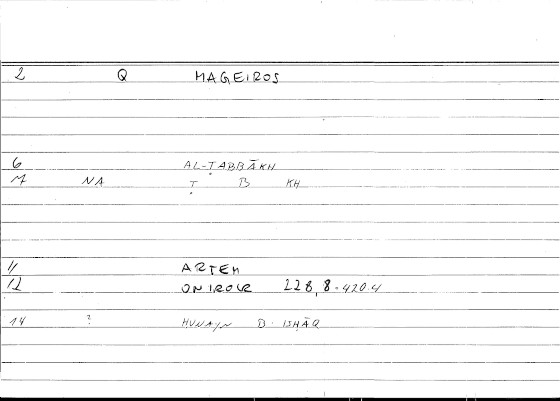 2 Q MAGEIROS
6 AL-ṬABBĀKH
7 NA Ṭ B KH
11 ARTEM
12 ONIROCR 228,8=420.4
14 ? HUNAYN B. ISḤĀQ